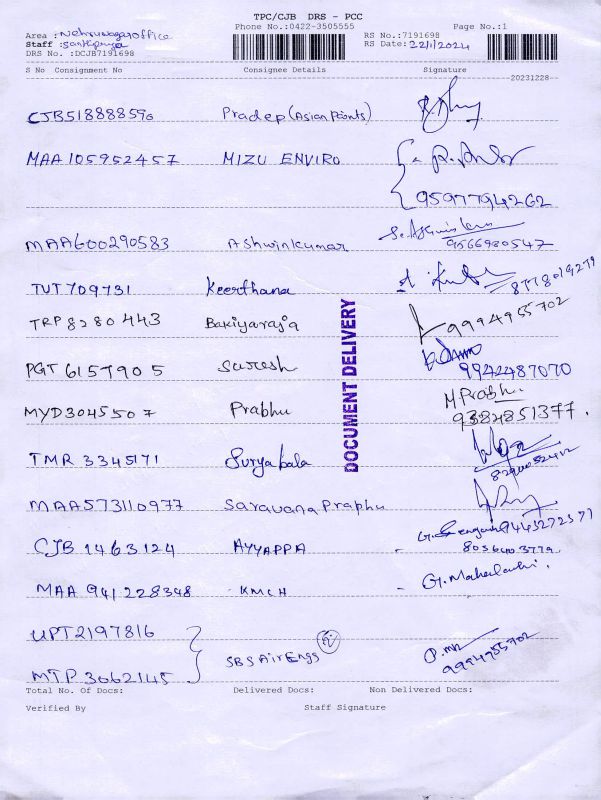 TPC/CJB DRS - PCC
Phone No.:0422-3505555 Page No.:1
Area : Nehrunagar office RS No.:7191698
Staff : Santhipriya RS Date: 22/1/2024
DRS No. :DCJB7191698
S No Consignment No Consignee Details Signature
20231228
CJB518888590 Pradep (Asian Paints)
MAA 105952457 MIZU ENVIRO
9597794262
MAA600290583 Ashwinkumar
9566980547
TUT 709731 Keerthana 8778019279
TRP 8280443 Bakiyaraja 9994955702
PGT 6157905 Suresh
9942487070
MYD3045507 Prabhu M Prabh.
9384851377.
TMR 3345171 Suryabala
MAA573110977 Saravana Praphu
CJB 1463124 AYYAPPA
MAA 941228348 - KMCH - G. Mahalashri.
UPT2197816
MTP 3662145 SBS AirEngg 9994955702
DOCUMENT DELIVERY
Total No. Of Docs: Delivered Docs: Non Delivered Docs:
Verified By Staff Signature